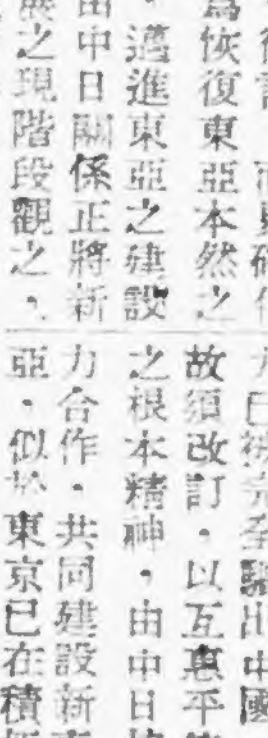 為恢復東亞本然之
，邁進東亞之建設
由中日關係正將新
展之現階段觀之，
力已被完全驅出中國
故須改訂，以互惠平
之根本精神，由中日
力合作，共同建設新東
亞，似於東京已在積